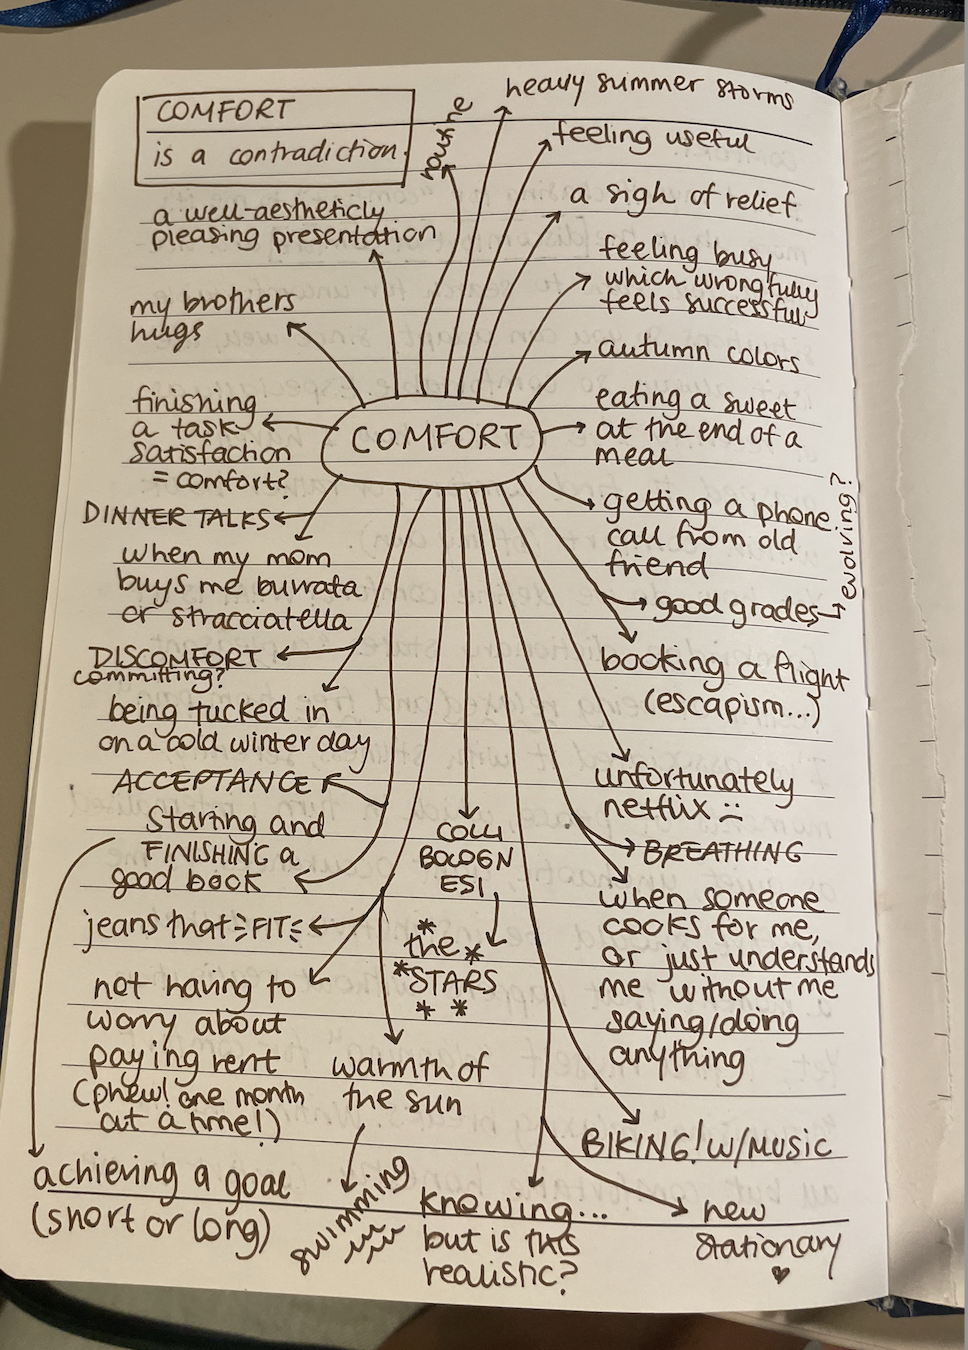 COMFORT
is a contradiction.
routine
heavy summer storms
feeling useful
a sigh of relief
a well-aestheticly
pleasing presentation
feeling busy
which wrongfully
feels successful
my brothers
hugs
autumn colors
finishing
a task
satisfaction
= comfort?
COMFORT
eating a sweet
at the end of a
meal
DINNER TALKS
getting a phone
call from old
friend
when my mom
buys me burrata
or stracciatella
good grades
evolving?
DISCOMFORT
committing?
booking a flight
(escapism...)
being tucked in
on a cold winter day
ACCEPTANCE
unfortunately
netflix
Staring and
FINISHING a
good book
COLLI
BOLOGN
ESI
BREATHING
jeans that FIT
the
STARS
when someone
cooks for me,
or just understands
me without me
saying/doing
anything
not having to
worry about
paying rent
(phew! one month
at a time!)
warmth of
the sun
BIKING! W/MUSIC
achieving a goal
(short or long)
swimming
knowing...
but is this
realistic?
new
stationary